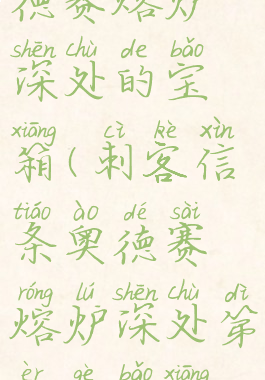 德赛熔炉
shēn chù de bǎo
深处的宝
xiāng cì kè xìn
箱(刺客信
tiáo ào dé sài
条奥德赛
róng lú shēn chù dì
熔炉深处第
èr gè bǎo xiāng